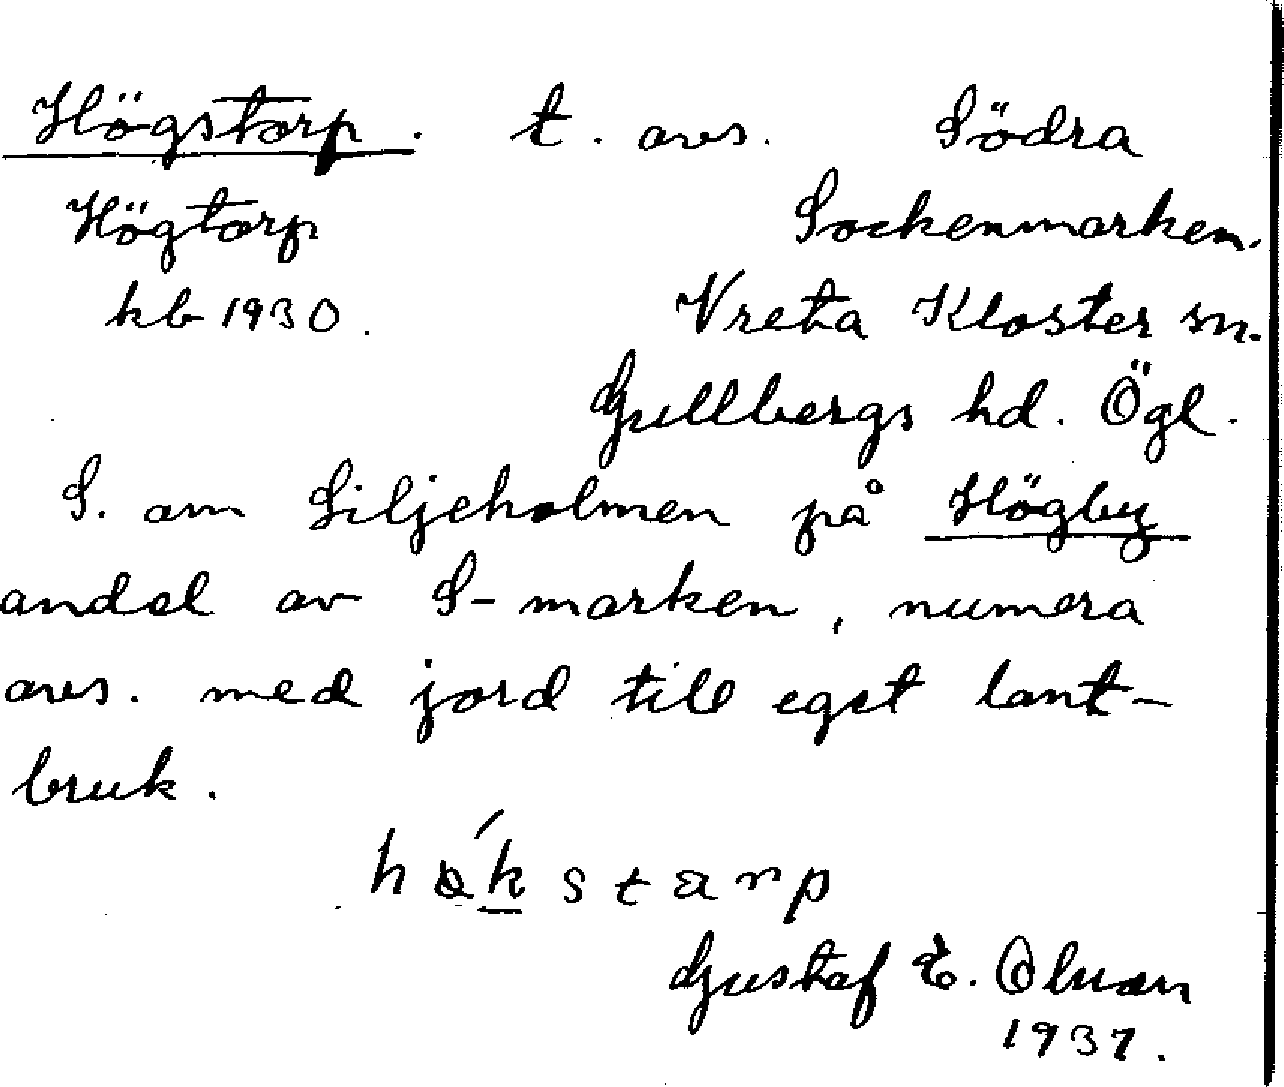 Högstorp. t. avs. Södra
Högtorp Sockenmarken.
kb 1930. Vreta Kloster sn.
Gullbergs hd. Ögl.
S. om Liljeholmen på Högby
andel av S-marken, numera
avs. med jord till eget lant-
bruk.
Gustaf E. Olson
1937.